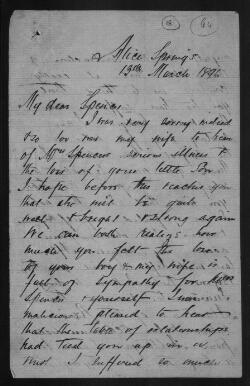 Alice Springs
13th March 1896
My dear Spencer
I was very sorry indeed
& so too was my wife to hear
of Mrs Spencers serious illness &
the loss of your little Son
I hope before this reaches you
that she will be quite
well & bright & strong again
We can both realise how
much you felt the loss
of your boy & my wife is
full of sympathy for Mrs
Spencer & yourself I was
maliciously pleased to hear
that the table of relationships
had tied you up in a
knot I suffered so much